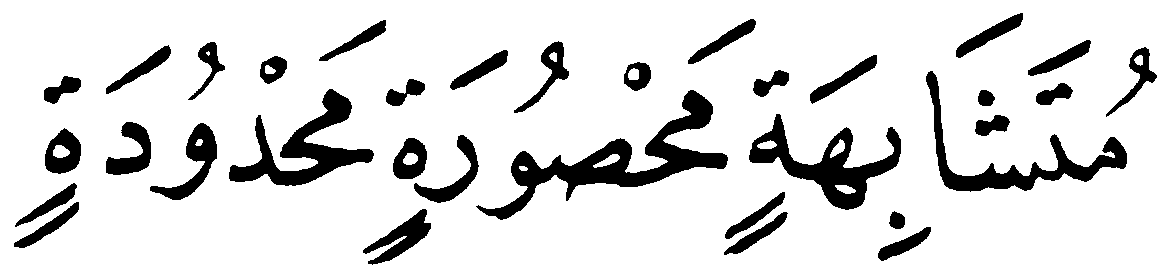 مُتَشَابِهَةٍ مَحْصُورَةٍ مَحْدُودَةٍ